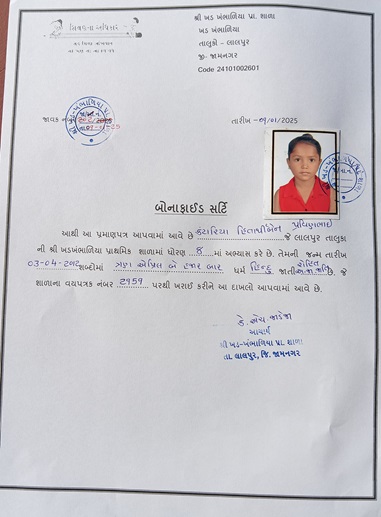 શિક્ષણના અધિકાર
શ્રી ખડ ખંભાળિયા પ્રા. શાળા
ખડ ખંભાળિયા
તાલુકો – લાલપુર
જી- જામનગર
Code 24101002601
જાવક નંબર
તારીખ -૦૧/૦૧/2025
બોનાફાઈડ સર્ટિ
આથી આ પ્રમાણપત્ર આપવામાં આવે છે કટારિયા હિતાર્થીબેન પ્રવિણભાઈ જે લાલપુર તાલુકા
ની શ્રી ખડખંભાળિયા પ્રાથમિક શાળામાં ધોરણ 8 માં અભ્યાસ કરે છે. તેમની જન્મ તારીખ
03-04-2012 શબ્દોમાં ત્રણ એપ્રિલ બે હજાર બાર ધર્મ હિન્દુ જાતી રોહિત છે જે
શાળાના વયપત્રક નંબર 2959 પરથી ખરાઈ કરીને આ દાખલો આપવામાં આવે છે.
કે. એચ. જાડેજા
આચાર્ય
શ્રી ખડ-ખંભાળિયા પ્રા. શાળા
તા. લાલપુર, જિ. જામનગર